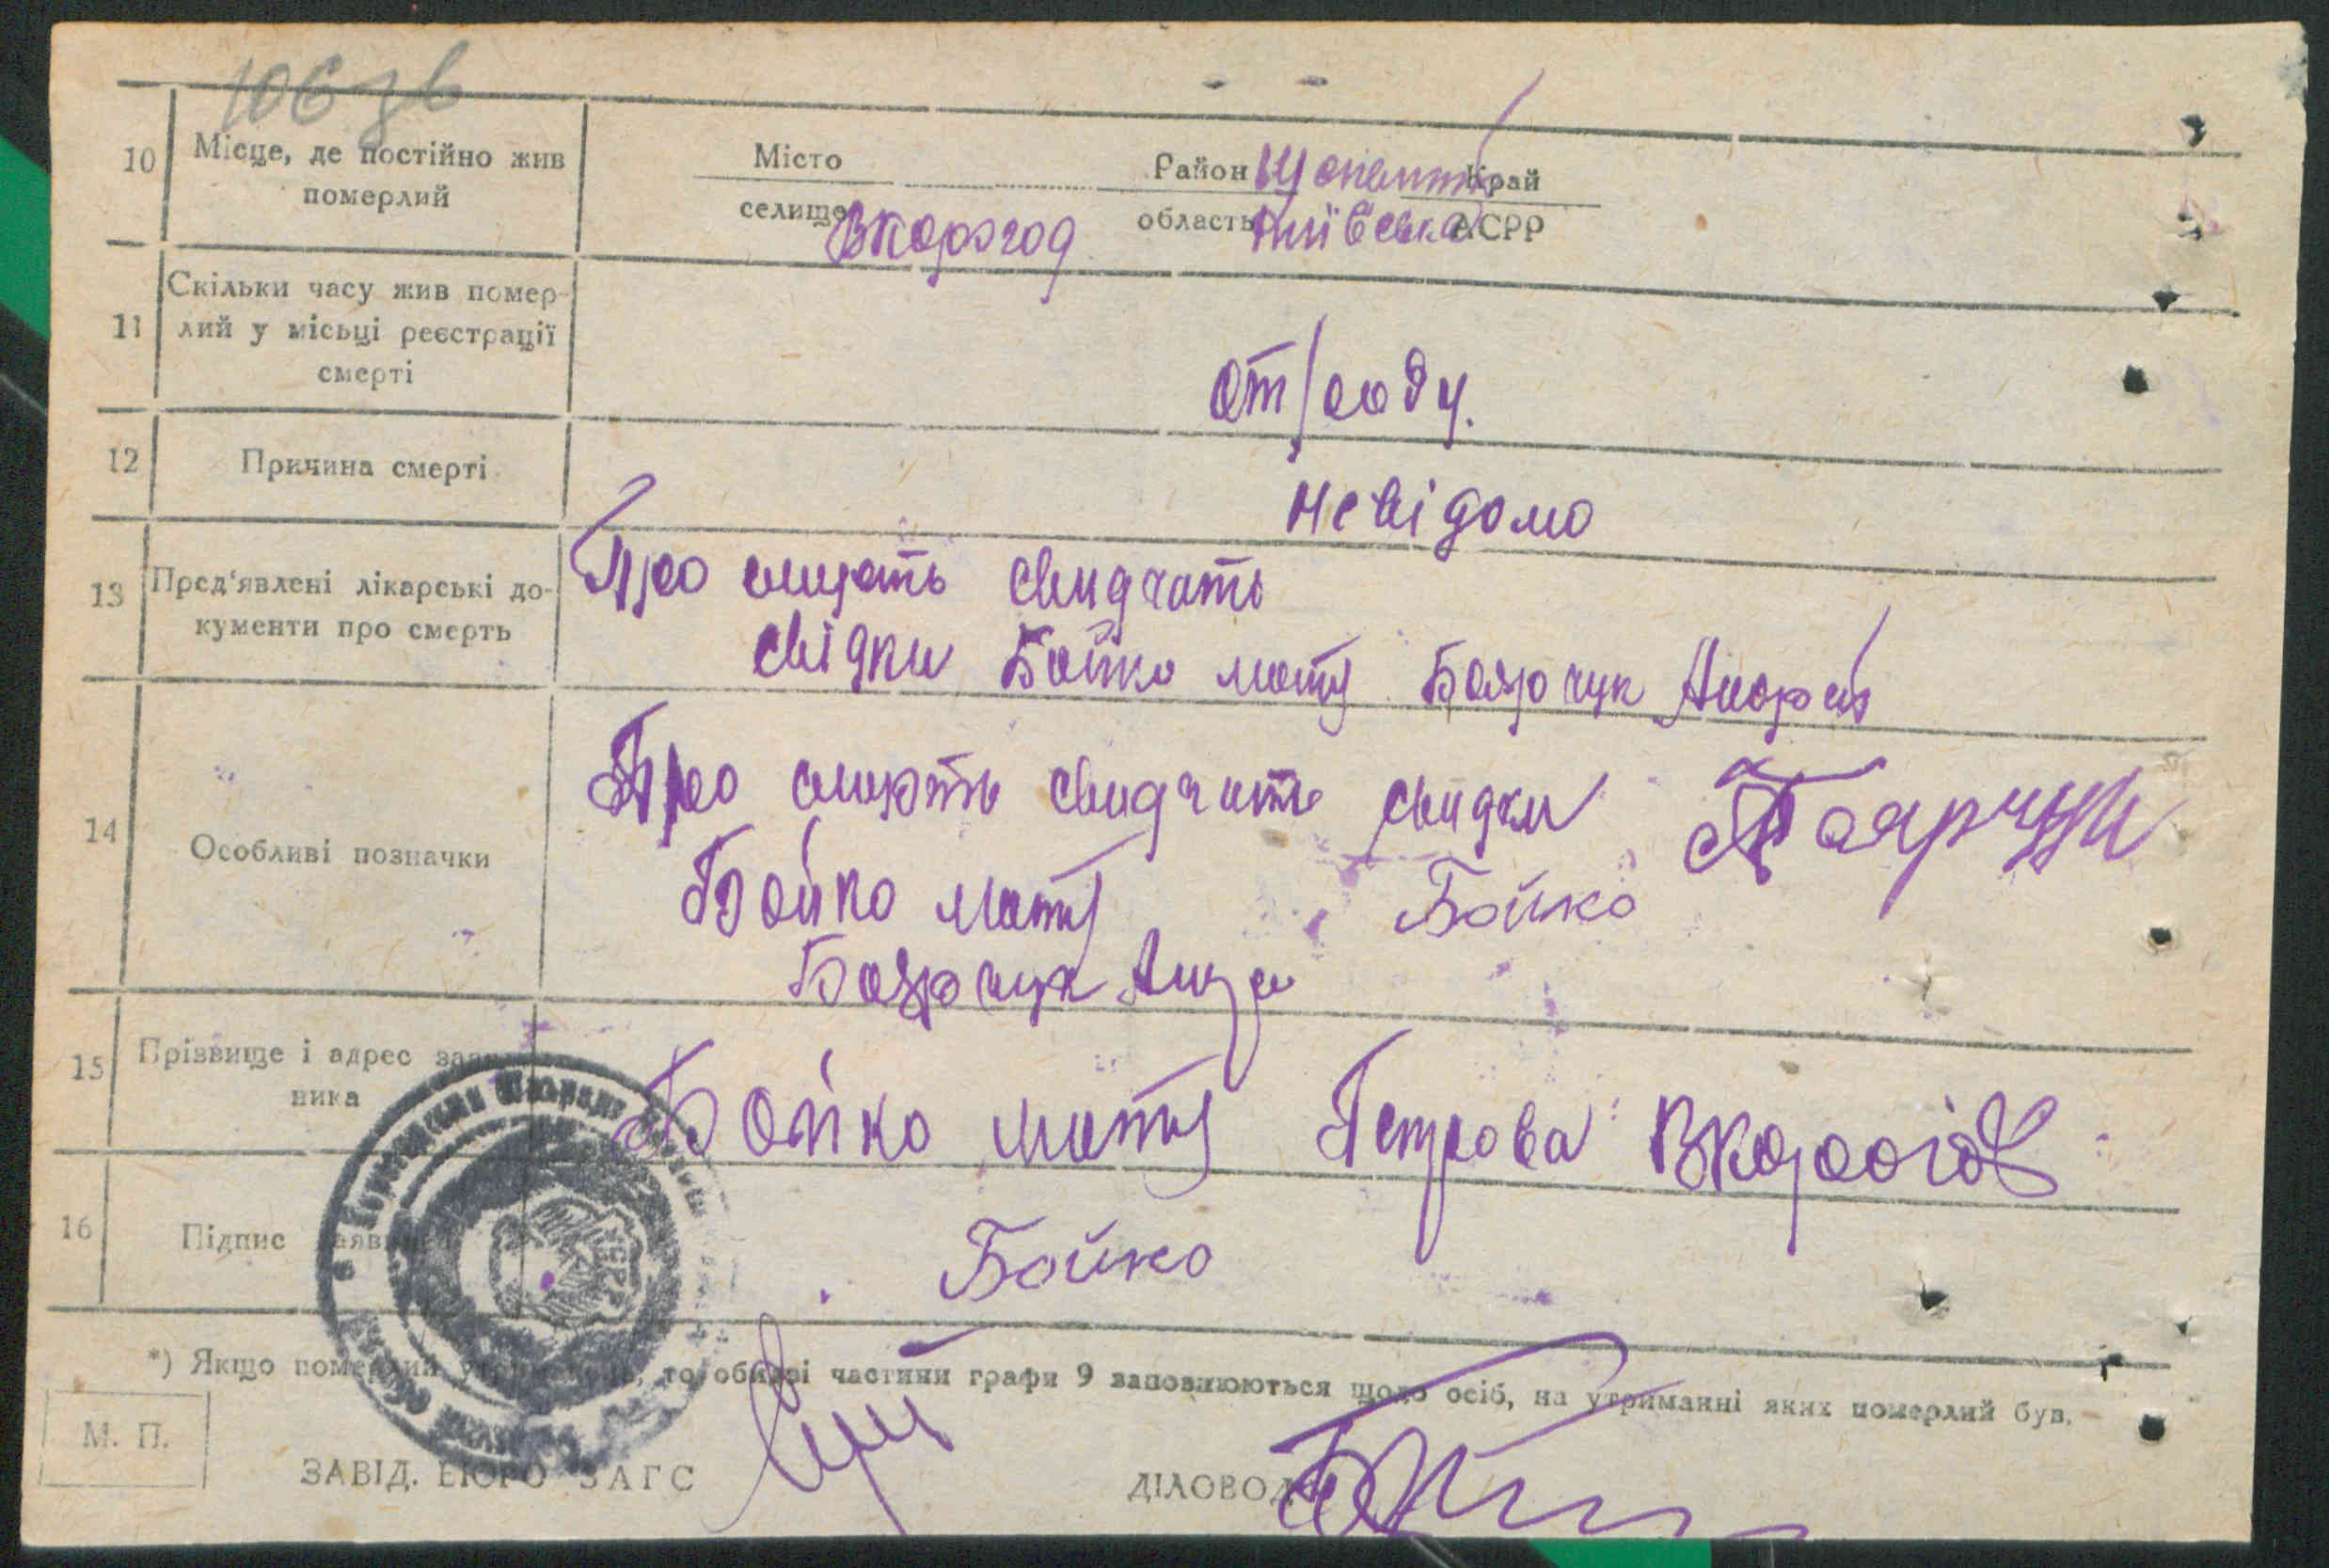 106 зв
10 Місце, де постійно жив померлий
Місто селище Вкорогод
Район Край
область Київська АСРР
11 Скільки часу жив помер-
лий у місьці реєстрації
смерті
от роду.
12 Причина смерті
невідомо
13 Пред'явлені лікарські до-
кументи про смерть
Про смирть свидчать
свідки Бойко мотя Боярчук Андрей
14 Особливі позначки
Про смирть свидчить свидки Боярчук
Бойко мотя Бойко
Боярчук
15 Прізвище і адрес заяв
ника
Бойко мотя Петрова
16 Підпис заяв
Бойко
*) Якщо померлий то обидві частини графи 9 заповнюються щодо осіб, на утриманні яких померлий був.
М. П.
ЗАВІД. БЮРО ЗАГС
ДІЛОВОД